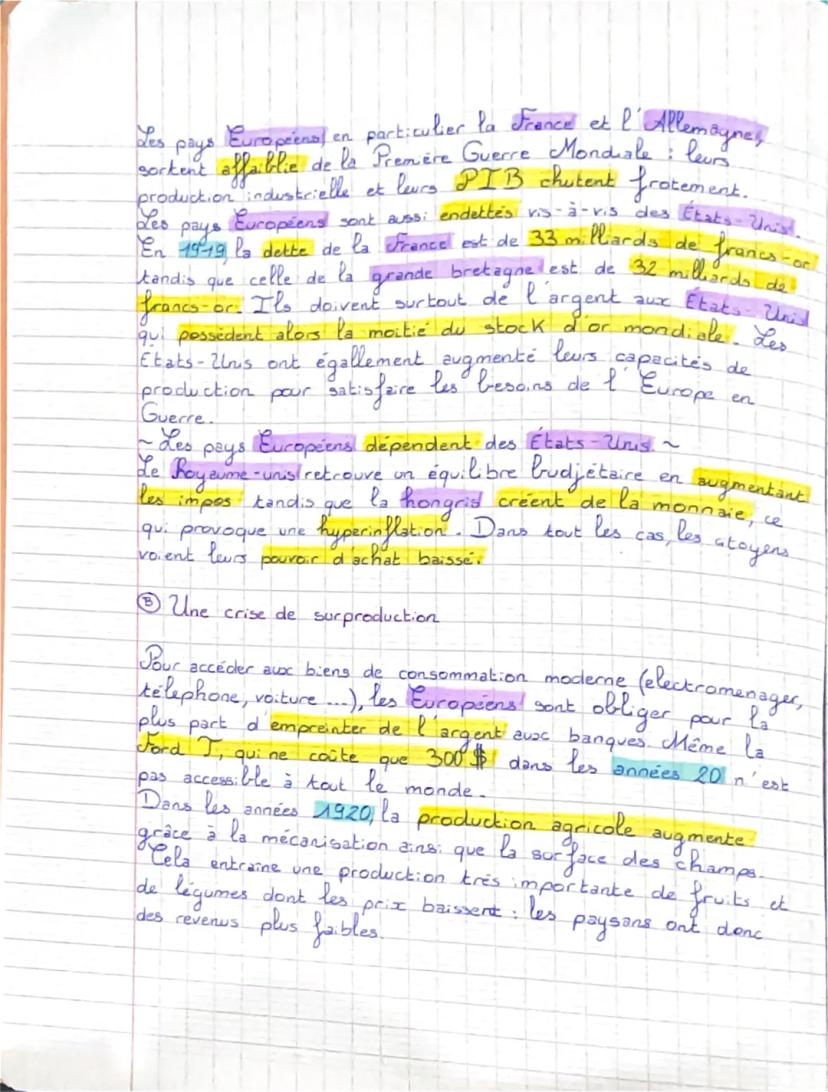 Les pays Européens, en particulier la France et l'Allemagne,
sortent affaiblie de la Première Guerre Mondiale : leurs
production industrielle et leurs PIB chutent frotement.
Les pays Européens sont aussi endettés vis-à-vis des États-Unis.
En 1919, la dette de la France est de 33 milliards de francs-or
tandis que celle de la grande bretagne est de 32 milliards de
francs-or. Ils doivent surtout de l'argent aux États-Unis
qui possèdent alors la moitié du stock d'or mondiale. Les
Etats-Unis ont égallement augmenté leurs capacités de
production pour satisfaire les besoins de l'Europe en
Guerre.
~ Les pays Européens dépendent des États-Unis. ~
Le Royaume-unis retrouve un équilibre budjétaire en augmentant
les impos tandis que la hongris créent de la monnaie, ce
qui provoque une hyperinflation. Dans tout les cas, les citoyens
voient leurs pouvoir d'achat baissé.
Ⓑ Une crise de surproduction
Pour accéder aux biens de consommation moderne (electromenager,
télephone, voiture ...), les Européens sont obliger pour la
plus part d'empreinter de l'argent aux banques. Même la
Ford T, qui ne coûte que 300 $ dans les années 20 n'est
pas accessible à tout le monde.
Dans les années 1920, la production agricole augmente
grâce à la mécanisation ainsi que la surface des champs.
Cela entraine une production très importante de fruits et
de légumes dont les prix baissent : les paysans ont donc
des revenus plus faibles.